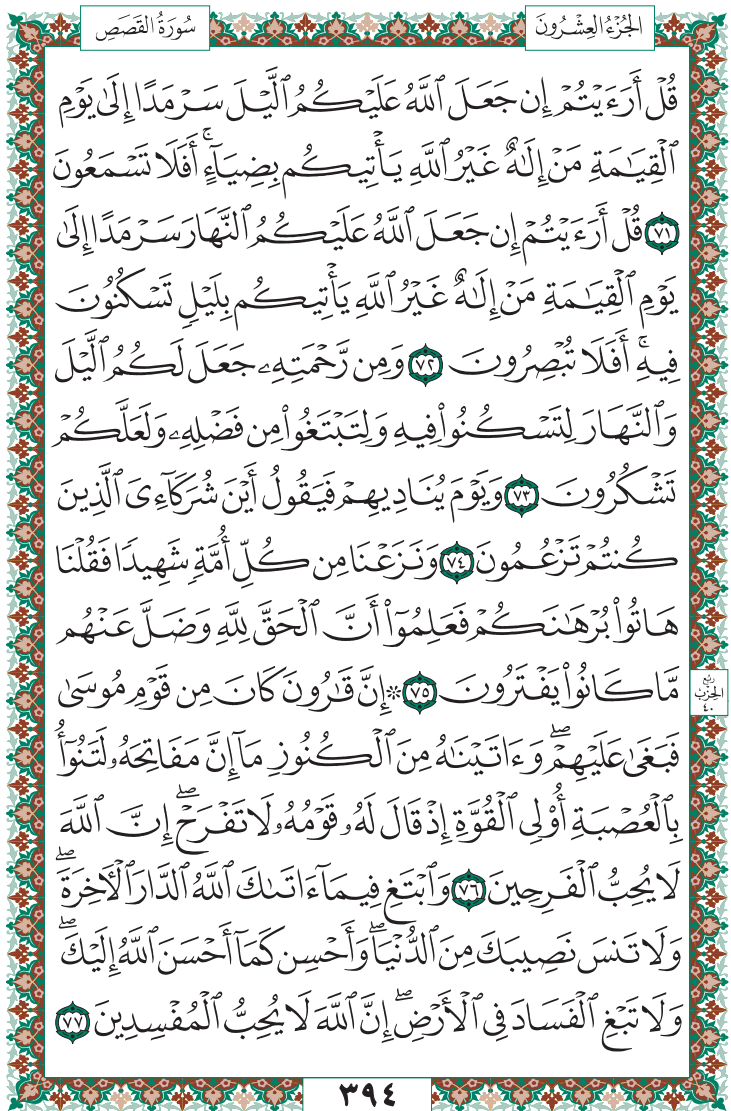 الجُزْءُ العِشْرُونَ
سُورَةُ القَصَصِ
قُلْ أَرَءَيْتُمْ إِن جَعَلَ ٱللَّهُ عَلَيْكُمُ ٱلَّيْلَ سَرْمَدًا إِلَىٰ يَوْمِ
ٱلْقِيَـٰمَةِ مَنْ إِلَـٰهٌ غَيْرُ ٱللَّهِ يَأْتِيكُم بِضِيَآءٍ ۚ أَفَلَا تَسْمَعُونَ
٧١ قُلْ أَرَءَيْتُمْ إِن جَعَلَ ٱللَّهُ عَلَيْكُمُ ٱلنَّهَارَ سَرْمَدًا إِلَىٰ
يَوْمِ ٱلْقِيَـٰمَةِ مَنْ إِلَـٰهٌ غَيْرُ ٱللَّهِ يَأْتِيكُم بِلَيْلٍ تَسْكُنُونَ
فِيهِ ۚ أَفَلَا تُبْصِرُونَ ٧٢ وَمِن رَّحْمَتِهِۦ جَعَلَ لَكُمُ ٱلَّيْلَ
وَٱلنَّهَارَ لِتَسْكُنُوا۟ فِيهِ وَلِتَبْتَغُوا۟ مِن فَضْلِهِۦ وَلَعَلَّكُمْ
تَشْكُرُونَ ٧٣ وَيَوْمَ يُنَادِيهِمْ فَيَقُولُ أَيْنَ شُرَكَآءِىَ ٱلَّذِينَ
كُنتُمْ تَزْعُمُونَ ٧٤ وَنَزَعْنَا مِن كُلِّ أُمَّةٍ شَهِيدًا فَقُلْنَا
هَاتُوا۟ بُرْهَـٰنَكُمْ فَعَلِمُوٓا۟ أَنَّ ٱلْحَقَّ لِلَّهِ وَضَلَّ عَنْهُم
مَّا كَانُوا۟ يَفْتَرُونَ ٧٥ ۞ إِنَّ قَـٰرُونَ كَانَ مِن قَوْمِ مُوسَىٰ
فَبَغَىٰ عَلَيْهِمْ ۖ وَءَاتَيْنَـٰهُ مِنَ ٱلْكُنُوزِ مَآ إِنَّ مَفَاتِحَهُۥ لَتَنُوٓأُ
بِٱلْعُصْبَةِ أُو۟لِى ٱلْقُوَّةِ إِذْ قَالَ لَهُۥ قَوْمُهُۥ لَا تَفْرَحْ ۖ إِنَّ ٱللَّهَ
لَا يُحِبُّ ٱلْفَرِحِينَ ٧٦ وَٱبْتَغِ فِيمَآ ءَاتَىٰكَ ٱللَّهُ ٱلدَّارَ ٱلْـَٔاخِرَةَ ۖ
وَلَا تَنسَ نَصِيبَكَ مِنَ ٱلدُّنْيَا ۖ وَأَحْسِن كَمَآ أَحْسَنَ ٱللَّهُ إِلَيْكَ ۖ
وَلَا تَبْغِ ٱلْفَسَادَ فِى ٱلْأَرْضِ ۖ إِنَّ ٱللَّهَ لَا يُحِبُّ ٱلْمُفْسِدِينَ ٧٧
رُبْع
الحِزْب
٤٠
٣٩٤